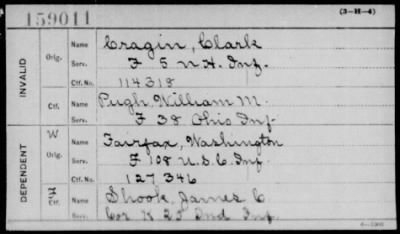 159011
(3-H-4)
INVALID
Orig.
Name Cragin, Clark
Serv. F 5 N.H. Inf.
Ctf. No. 114318
Ctf.
Name Pugh, William M.
Serv. F 38 Ohio Inf.
DEPENDENT
W
Orig.
Name Fairfax, Washington
Serv. F 108 U.S.C. Inf.
Ctf. No. 127346
Ctf.
Name Shook, James C
Serv. Cor K 25 Ind Inf.